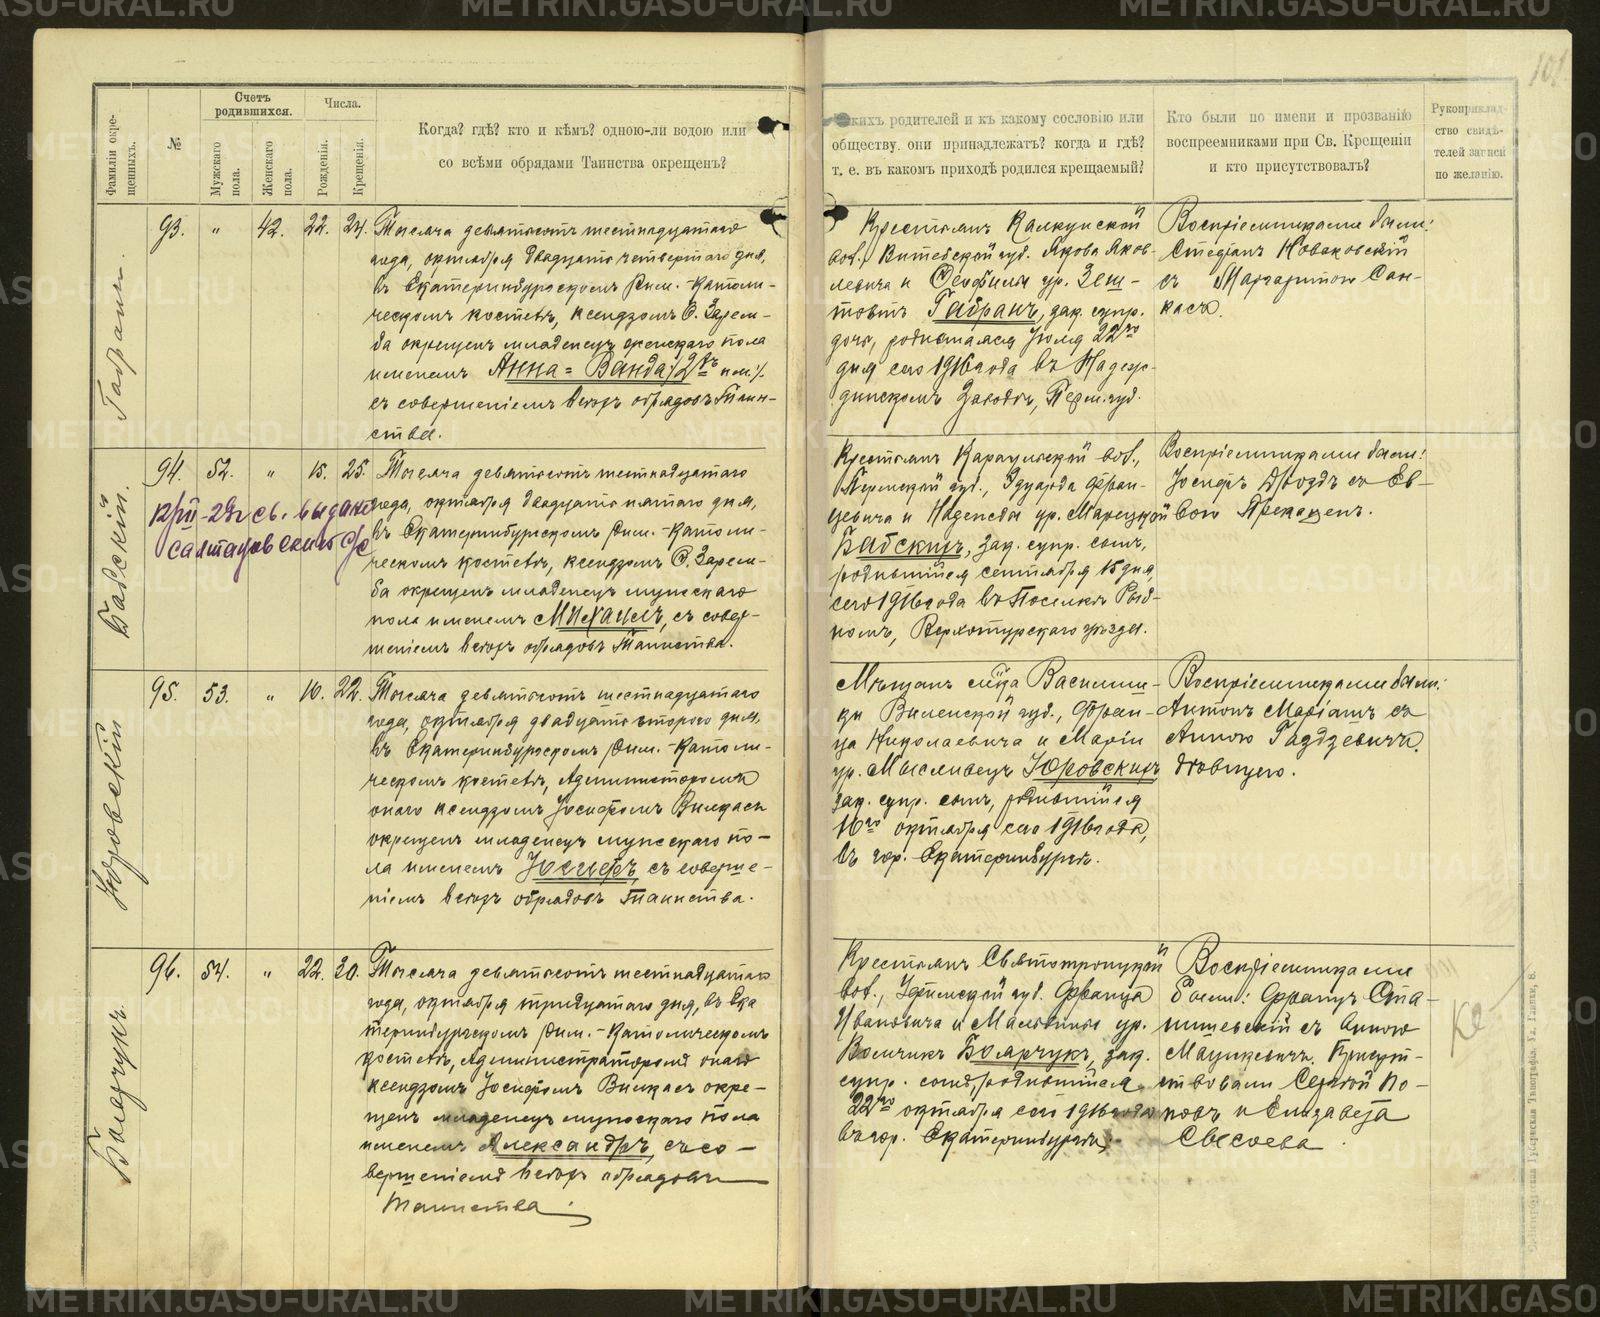 101
Фамиліи окре-
щенныхъ.
№
Счетъ
родившихся.
Мужскаго
пола.
Женскаго
пола.
Числа.
Рожденія.
Крещенія.
Когда? гдѣ? кто и кѣмъ? одною-ли водою или
со всѣми обрядами Таинства окрещенъ?
какихъ родителей и къ какому сословію или
обществу они принадлежатъ? когда и гдѣ?
т. е. въ какомъ приходѣ родился крещаемый?
Кто были по имени и прозванію
воспреемниками при Св. Крещеніи
и кто присутствовалъ?
Рукоприклад-
ство свидѣ-
телей записи
по желанію.
Габранъ.
93. " 42. 22. 24.
Тысяча девятьсотъ шестнадцатаго
года, октября двадцать четвертаго дня,
въ Екатеринбургскомъ Рим.-Католи-
ческомъ костелѣ, ксендзомъ С. Зарем-
ба окрещенъ младенецъ женскаго пола
именемъ Анна=Ванда /2хъ им./.
съ совершеніемъ всѣхъ обрядовъ Таин-
ства.
Крестьянъ Калкунской
вол. Витебской губ. Якова Яков-
левича и Теофили ур.
Габранъ, зак. супр.
дочь, родившаяся Іюля 22го
дня сего 1916 года въ Надеж-
динскомъ Заводѣ, Перм. губ.
Воспріемниками были:
Стефанъ Новаковскій
съ Маргаритою Сан-
касъ.
Бабскій.
94. 52. " 15. 25.
12/III-29г св. выдано
Салтановскому с/с
Тысяча девятьсотъ шестнадцатаго
года, октября двадцать пятаго дня,
въ Екатеринбургскомъ Рим.-Католи-
ческомъ костелѣ, ксендзомъ С. Зарем-
ба окрещенъ младенецъ мужскаго
пола именемъ Михаилъ, съ совер-
шеніемъ всѣхъ обрядовъ Таинства.
Крестьянъ Караульской вол.,
Пермской губ., Эдуарда Фран-
цевича и Надежды ур. Марецкой
Бабскихъ, зак. супр. сынъ,
родившійся сентября 15 дня,
сего 1916 года въ Поселкѣ Руд-
номъ, Верхотурскаго уѣзда.
Воспріемниками были:
Іосифъ Дроздъ съ Ев-
вою
Юровскій
95. 53. " 16. 22.
Тысяча девятьсотъ шестнадцатаго
года, октября двадцать втораго дня,
въ Екатеринбургскомъ Рим.-Католи-
ческомъ костелѣ, Администоромъ
онаго ксендзомъ Іосифомъ Вилкасъ
окрещенъ младенецъ мужскаго по-
ла именемъ Юсифъ, съ соверше-
ніемъ всѣхъ обрядовъ Таинства.
Мѣщанъ Василиш-
ки Виленской губ., Фран-
ца Николаевича и Маріи
ур. Мысливецъ Юровскихъ
зак. супр. сынъ, родившійся
16го октября сего 1916 года,
въ гор. Екатеринбургѣ.
Воспріемниками были:
Антонъ Маріанъ съ
Анною Газдзевичъ
дѣвицею.
Боярчукъ.
96. 54. " 22. 30.
Тысяча девятьсотъ шестнадцатаго
года, октября тридцатаго дня, въ Ека
теринбургскомъ Рим.-Католическомъ
костелѣ, Администраторомъ онаго
ксендзомъ Іосифомъ Вилкасъ окре-
щенъ младенецъ мужскаго пола
именемъ Александръ, съ со-
вершеніемъ всѣхъ обрядовъ
Таинства.
Крестьянъ Святотроицкой
вол., Уфимской губ. Франца
Ивановича и Мальвины ур.
Вольчикъ Боярчукъ, зак.
супр. сынъ, родившійся
22го октября сего 1916 года
въ гор. Екатеринбургѣ.
Воспріемниками
были: Францъ Ста-
нишевскій съ Анною
Мацкевичъ. Присут-
ствовали Сергѣй По-
повъ и Елизавета
Свѣсоева.
METRIKI.GASO-URAL.RU